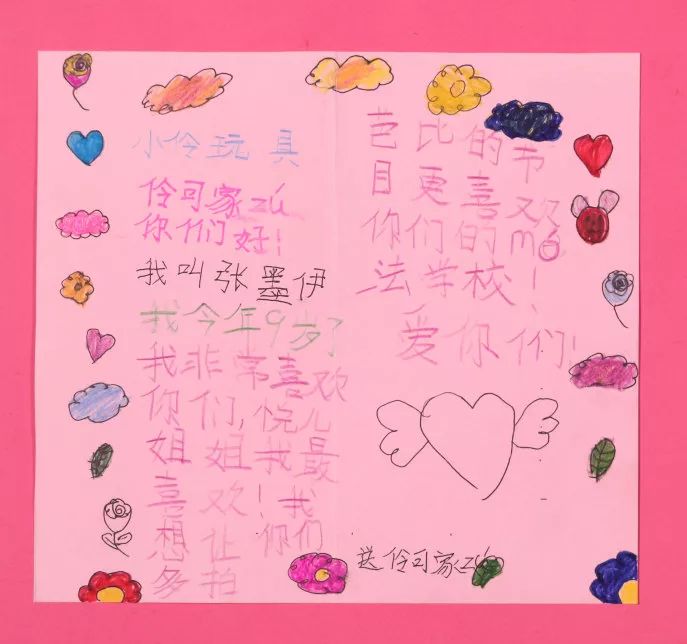 小伶玩具
伶可家zú
你们好！
我叫张墨伊
我今年9岁了
我非常喜欢
你们，悦儿
姐姐我最
喜欢！我
想让你们
多拍
芭比的节
目更喜欢
你们的mó
法学校！
爱你们！
送伶可家zú